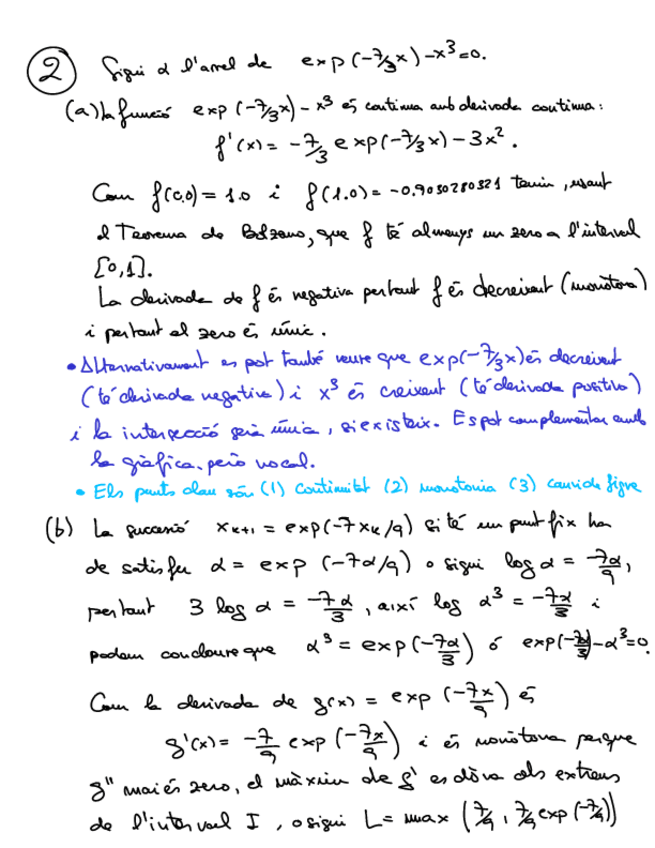 2 Sigui α l'arrel de exp(-7/3x)-x³=0.
(a) la funció exp(-7/3x)-x³ és continua amb derivada continua:
f'(x) = -7/3 exp(-7/3x)-3x².
Com f(0.0)=1.0 i f(1.0)=-0.9030280321 tenim, usant
el Teorema de Bolzano, que f té almenys un zero a l'interval
[0,1].
La derivada de f és negativa pertant f és decreixent (monòtona)
i pertant el zero és únic.
• Alternativament es pot també veure que exp(-7/3x) és decreixent
(té derivada negativa) i x³ és creixent (té derivada positiva)
i la intersecció serà única, si existeix. Es pot complementar amb
la gràfica, però no cal.
• Els punts clau són (1) Continuitat (2) monotonia (3) canvi de signe
(b) La successió xₖ₊₁ = exp(-7xₖ/9) si té un punt fix ha
de satisfer α = exp(-7α/9) o sigui log α = -7α/9,
pertant 3 log α = -7α/3, així log α³ = -7α/3 i
podem concloure que α³ = exp(-7α/3) ó exp(-7α/3)-α³=0.
Com la derivada de g(x) = exp(-7x/9) és
g'(x) = -7/9 exp(-7x/9) i és monòtona perque
g'' mai és zero, el màxim de g' es dòna als extrems
de l'interval I, o sigui L = max (7/9, 7/9 exp(-7/9))